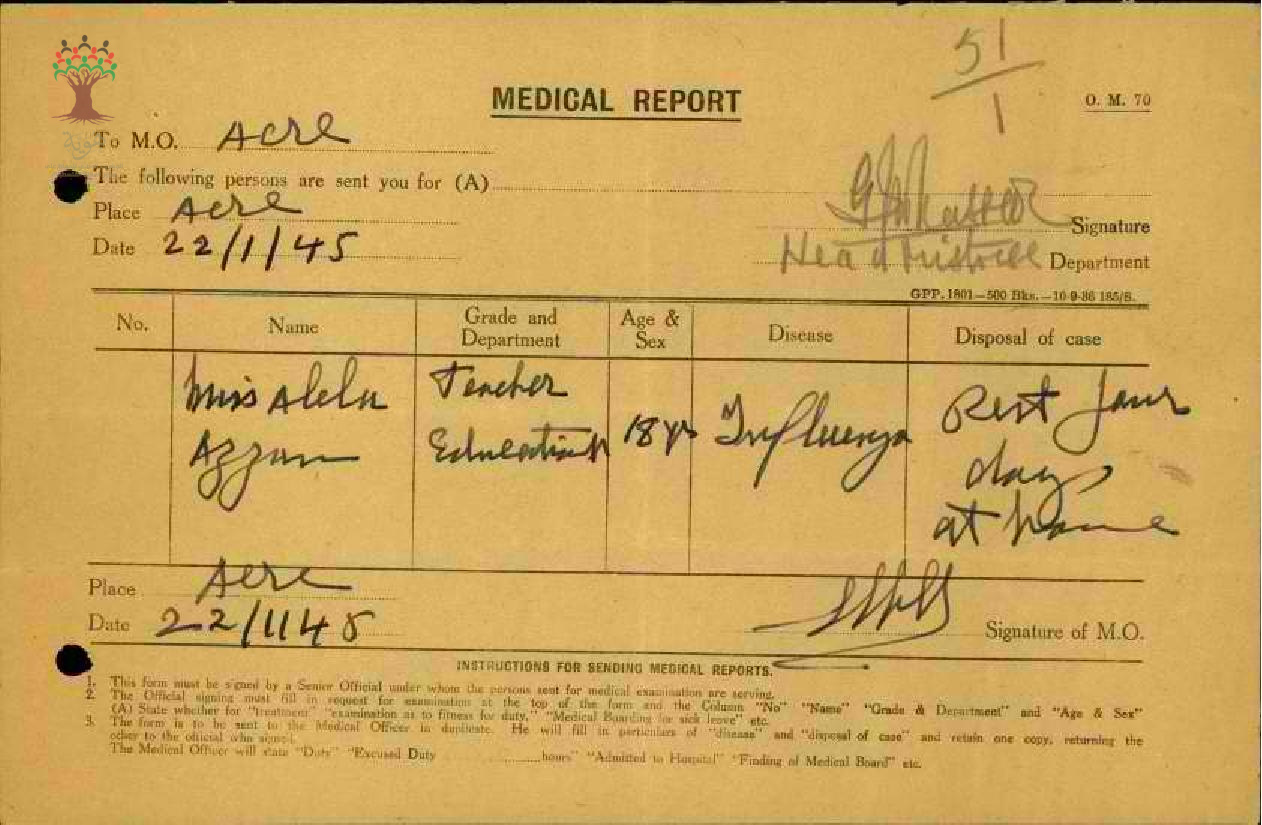 51
1
MEDICAL REPORT
O. M. 70
To M.O. Acre
The following persons are sent you for (A)
Place Acre
Signature
Date 22/1/45
Head Department
GPP. 1801—500 Bks.—10-9-36 185/S.
No. Name Grade and Department Age & Sex Disease Disposal of case
Miss Teacher Rest four
Azzam Education 18 yrs Influenza days
at home
Place Acre
Date 22/1/45
Signature of M.O.
INSTRUCTIONS FOR SENDING MEDICAL REPORTS.
1. This form must be signed by a Senior Official under whom the persons sent for medical examination are serving.
2. The Official signing must fill in request for examination at the top of the form and the Column "No" "Name" "Grade & Department" and "Age & Sex"
(A) State whether for "treatment" "examination as to fitness for duty," "Medical Boarding for sick leave" etc.
3. The form is to be sent to the Medical Officer in duplicate. He will fill in particulars of "disease" and "disposal of case" and retain one copy, returning the
other to the official who signed.
The Medical Officer will state "Duty" "Excused Duty ............hours" "Admitted to Hospital" "Finding of Medical Board" etc.